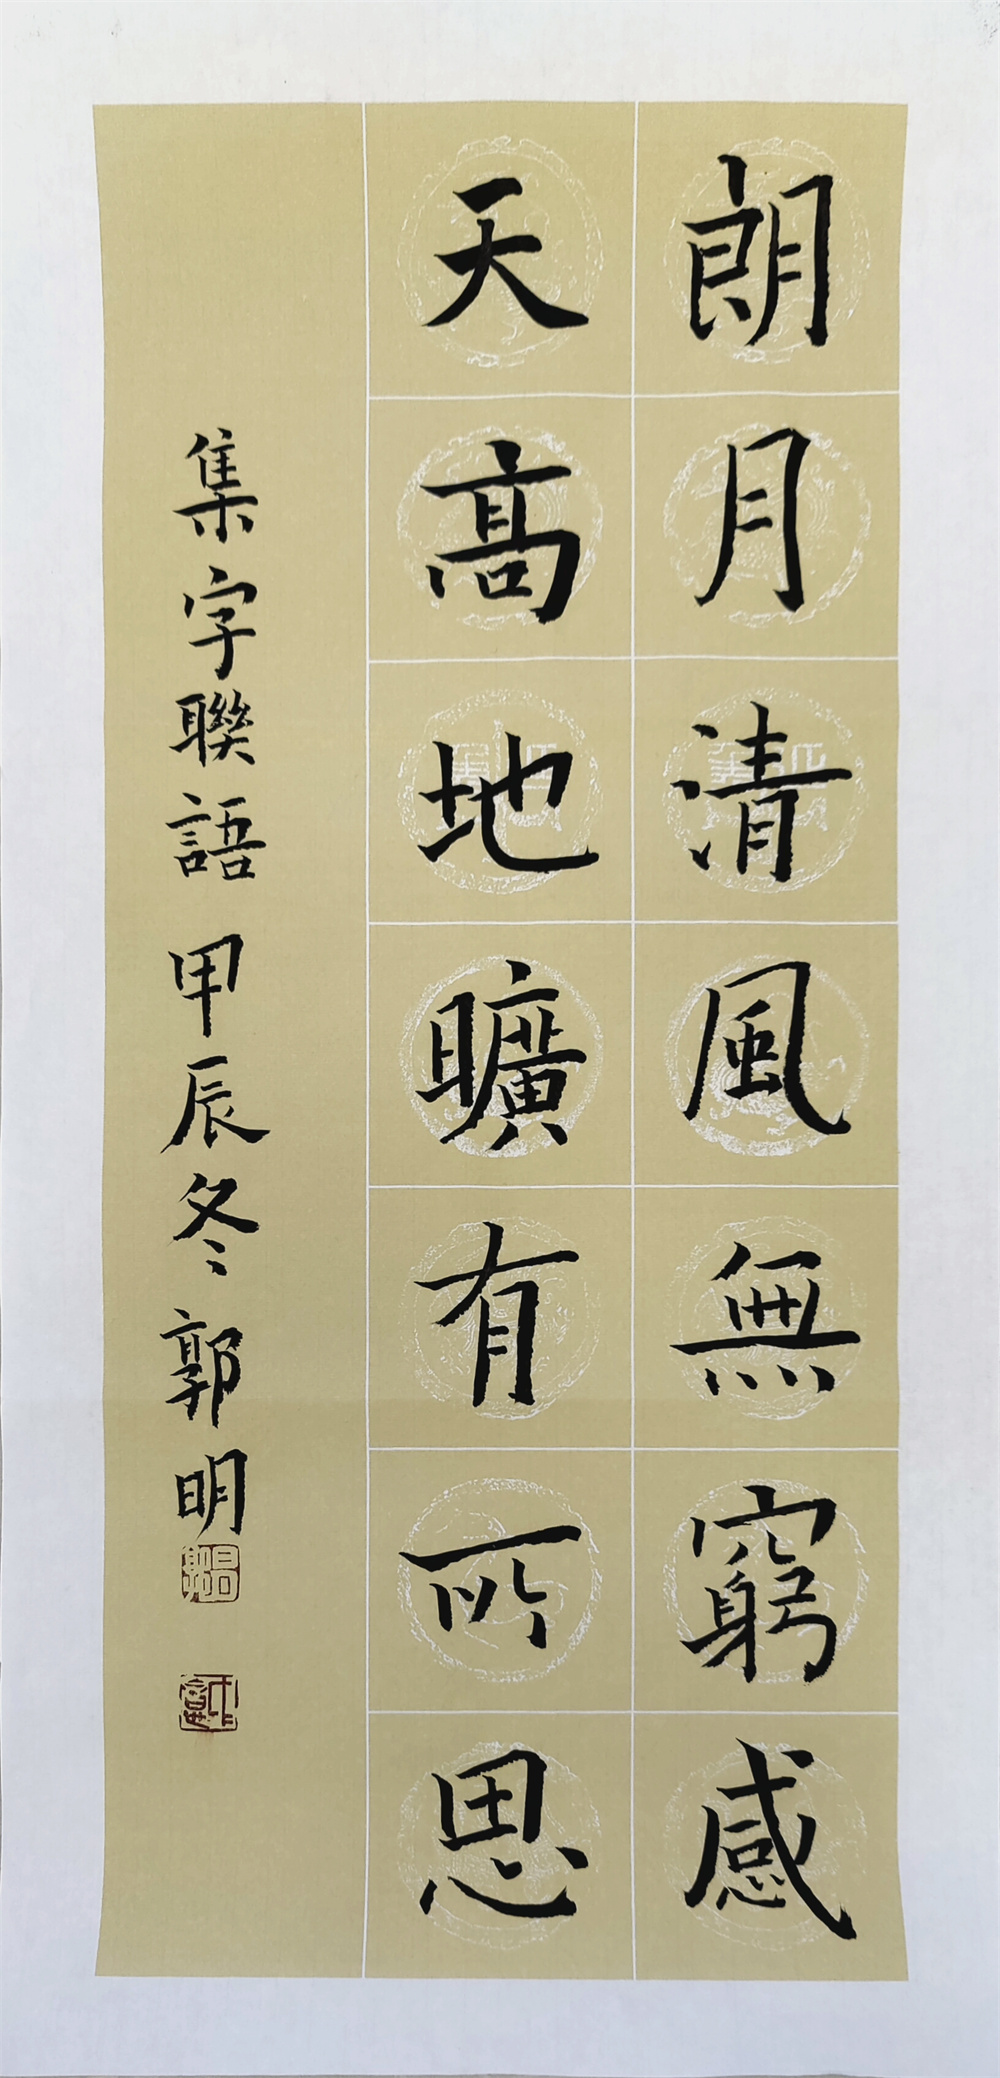 朗月清風無窮感
天高地曠有所思
集字聯語甲辰冬郭明